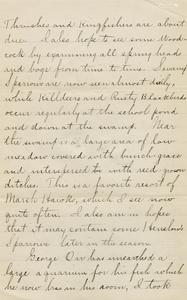 Thrushes and Kingfishers are about
due. I also hope to see some Wood-
cock by examining all spring heads
and bogs from time to time. Swamp
Sparrows are now seen almost daily,
while Killdeers and Rusty Blackbirds
occur regularly at the school pond
and down at the swamp. Near
the swamp is a large area of low
meadow covered with bunch-grass
and interspersed with reed-grown
ditches. This is a favorite resort of
Marsh Hawks, which I see now
quite often. I also am in hopes
that it may contain some Henslow
Sparrows later in the season.
George Orr has unearthed a
large aquarium for his fish which
he now has in his room. I took